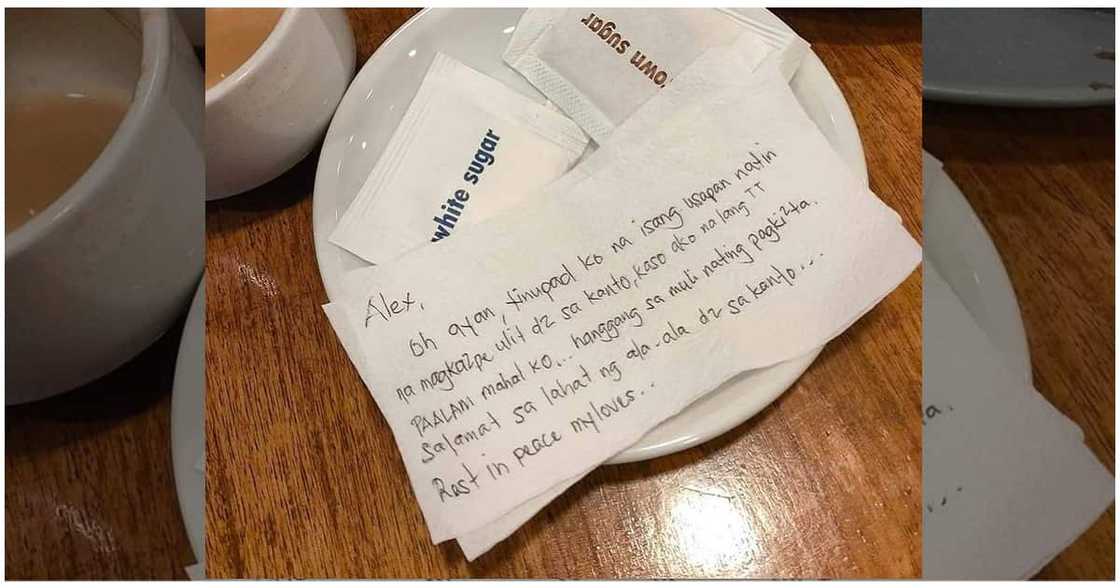 own sugar
white sugar
Alex,
oh ayan, tinupad ko na isang usapan natin
na magkaipe ulit d2 sa kanto, kaso ako na lang TT
PAALAM mahal ko... hanggang sa muli nating pagkikita.
Salamat sa lahat ng ala-ala d2 sa kanto...
Rest in peace myloves..
a.
...